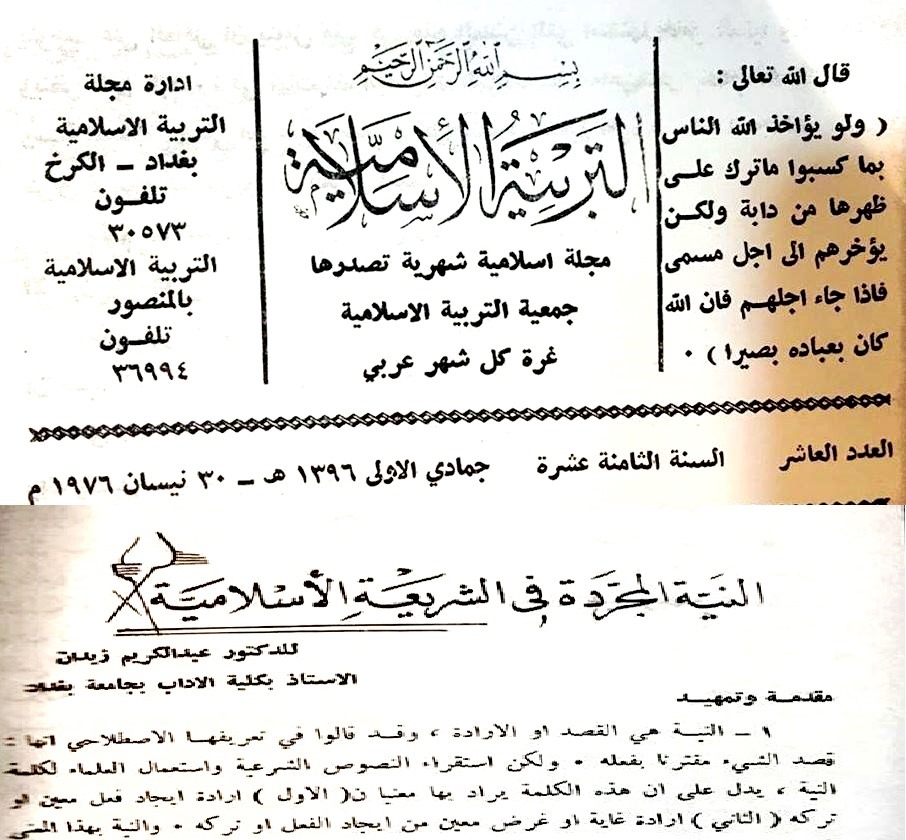 قال الله تعالى :
( ولو يؤاخذ الله الناس
بما كسبوا ماترك على
ظهرها من دابة ولكن
يؤخرهم الى اجل مسمى
فاذا جاء اجلهم فان الله
كان بعباده بصيرا ) .
بسم الله الرحمن الرحيم
التربية الاسلامية
مجلة اسلامية شهرية تصدرها
جمعية التربية الاسلامية
غرة كل شهر عربي
ادارة مجلة
التربية الاسلامية
بغداد – الكرخ
تلفون
٣٠٥٧٣
التربية الاسلامية
بالمنصور
تلفون
٣٦٩٩٤
العدد العاشر السنة الثامنة عشرة جمادي الاولى ١٣٩٦ هـ – ٣٠ نيسان ١٩٧٦ م
النية المجردة في الشريعة الأسلامية
للدكتور عبدالكريم زيدان
الاستاذ بكلية الاداب بجامعة بغداد
مقدمة وتمهيد
١ – النية هي القصد او الارادة ، وقد قالوا في تعريفها الاصطلاحي انها :
قصد الشيء مقترنا بفعله . ولكن استقراء النصوص الشرعية واستعمال العلماء لكلمة
النية ، يدل على ان هذه الكلمة يراد بها معنيان ( الاول ) ارادة ايجاد فعل معين او
تركه ( الثاني ) ارادة غاية او غرض معين من ايجاد الفعل او تركه . والنية بهذا المعنى